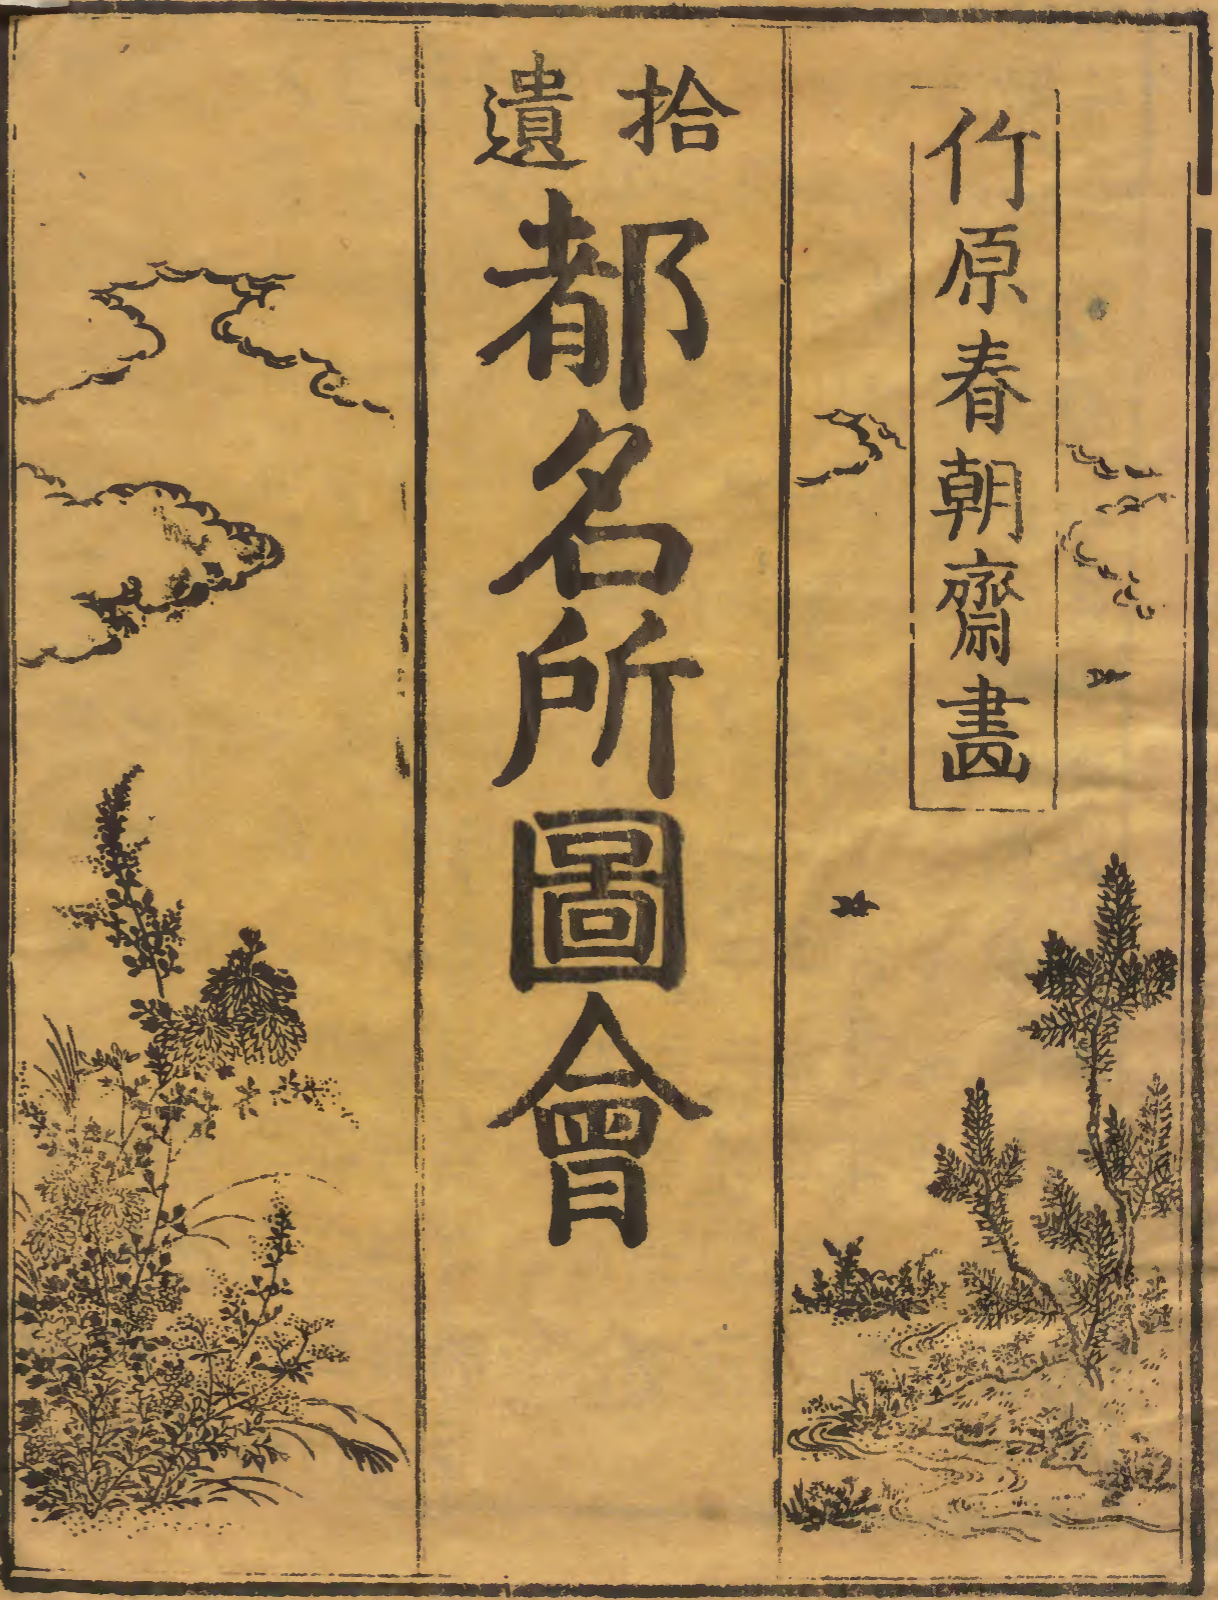 竹原春朝齋畫
拾遺
都名所圖會